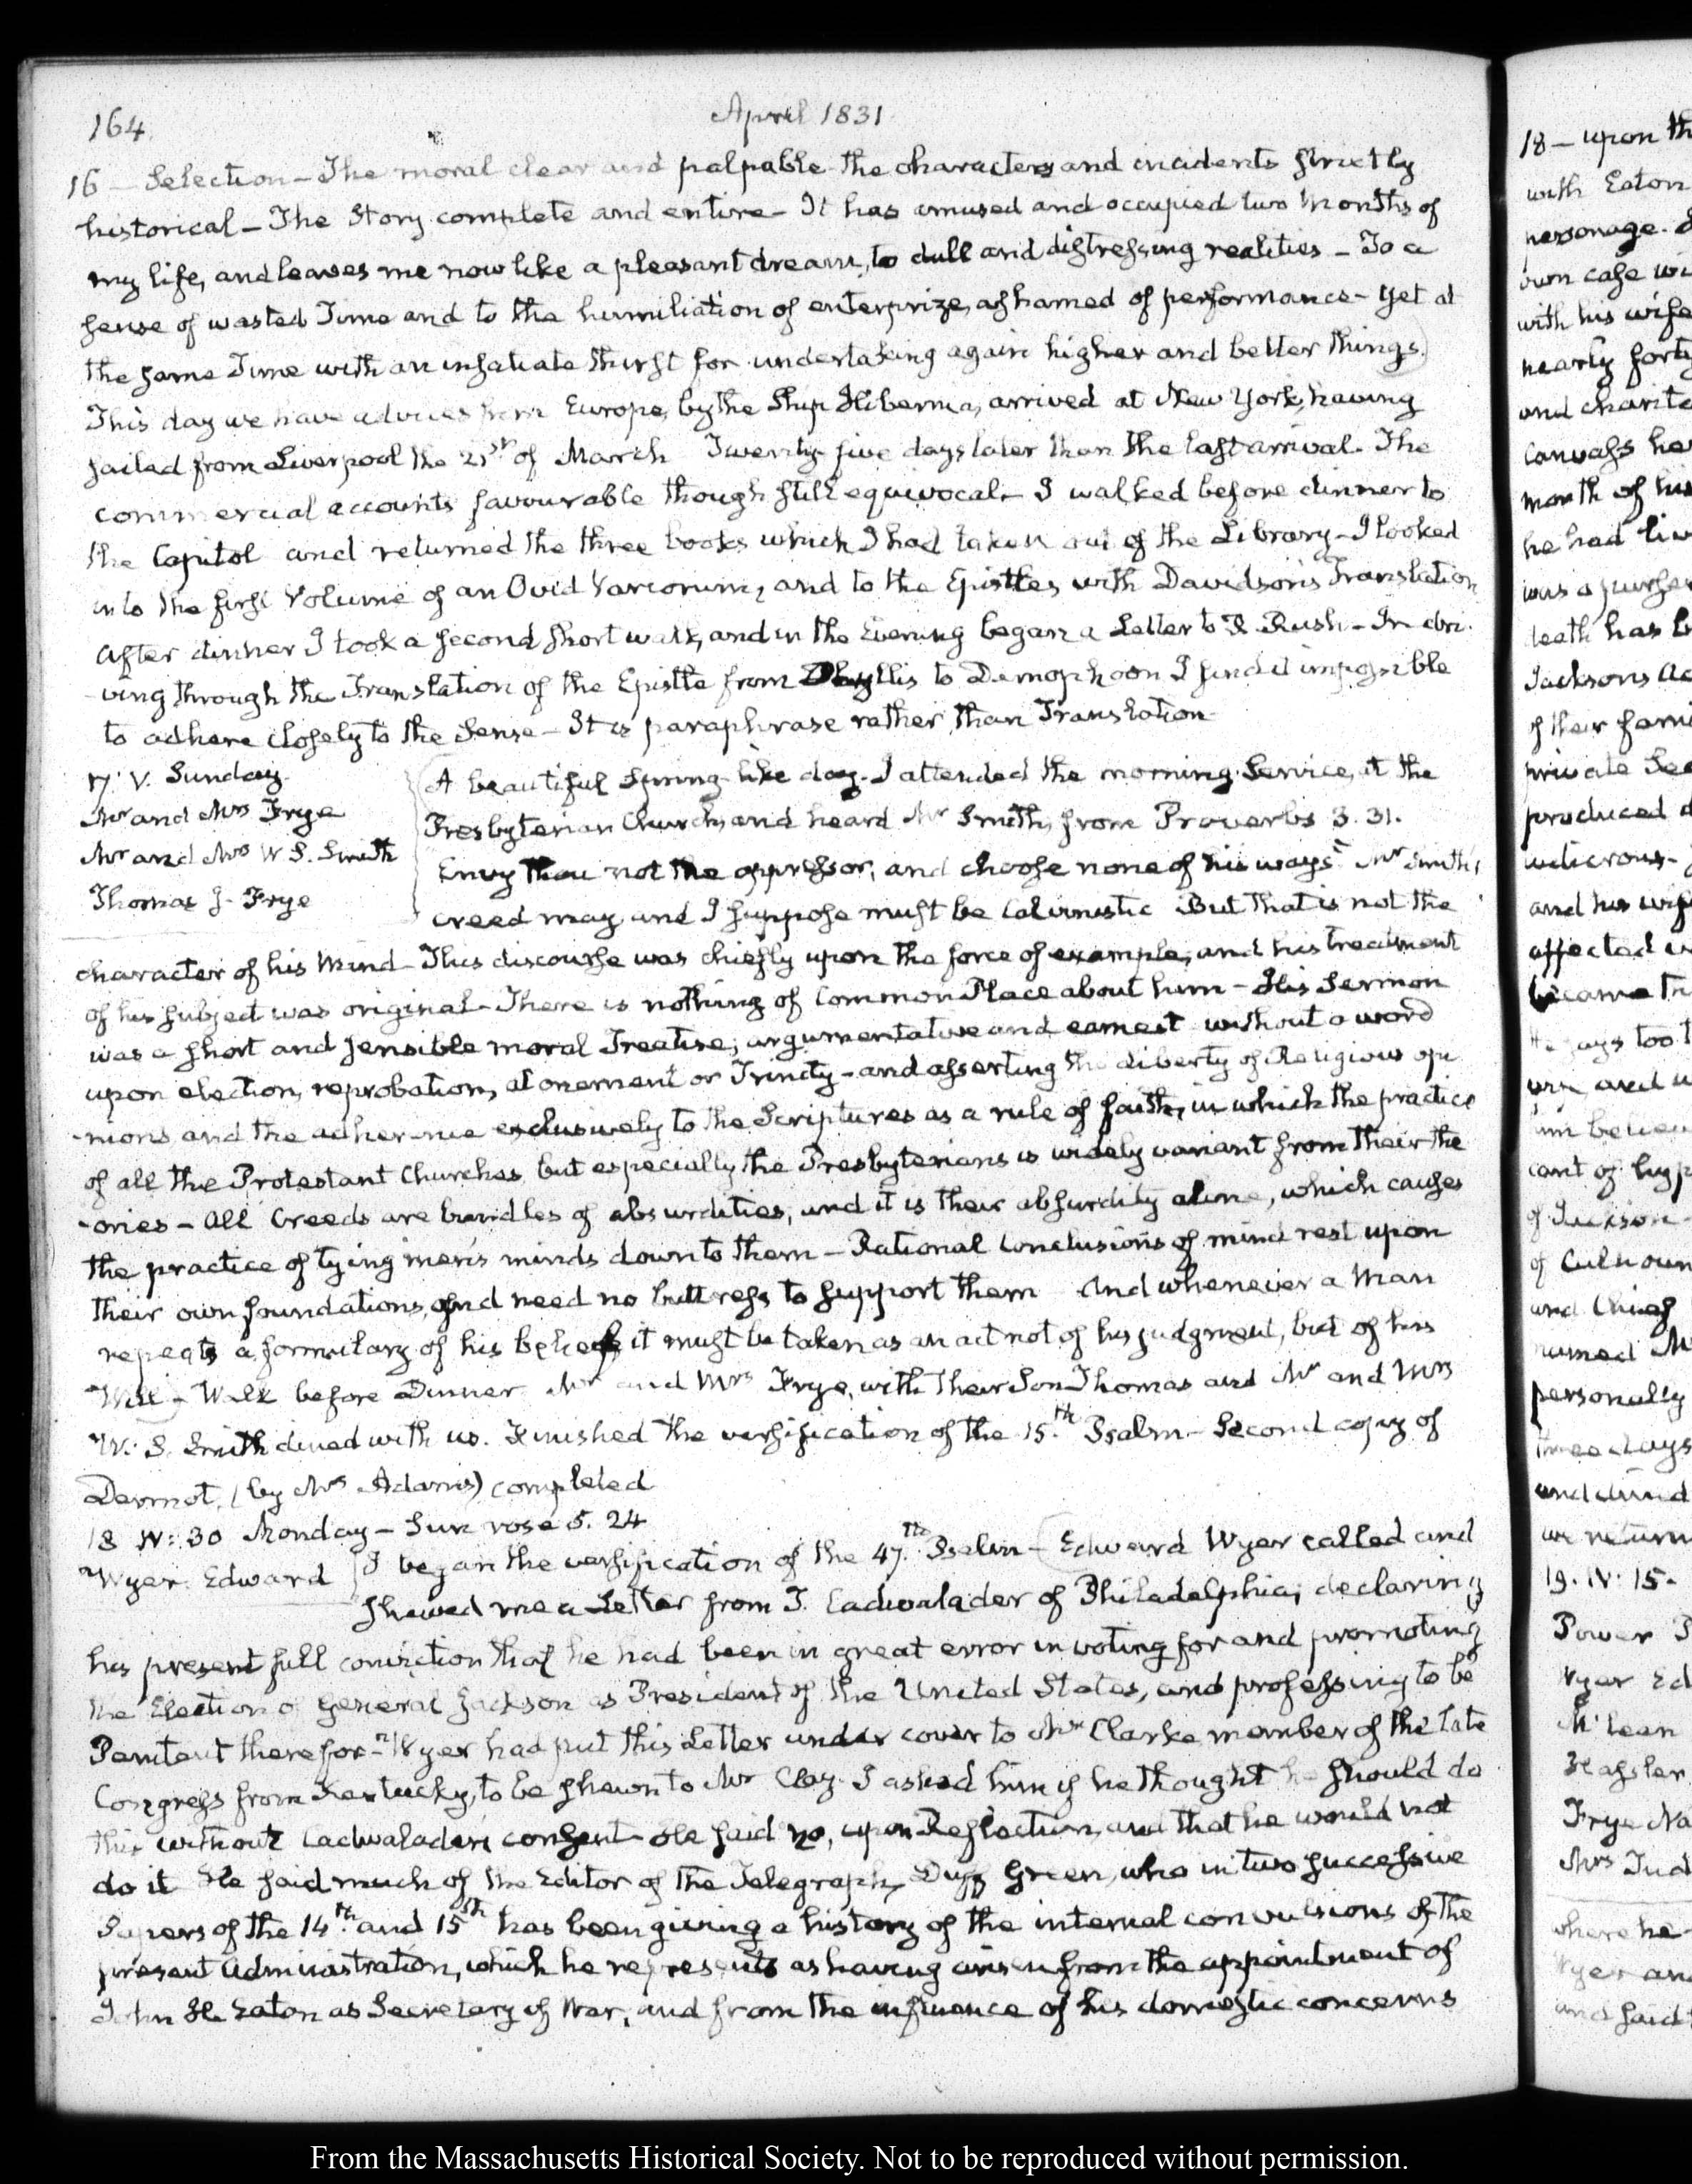 164. April 1831
16 — Selection — The moral clear and palpable the characters and incidents strictly
historical — The Story complete and entire — It has amused and occupied two Months of
my life, and leaves me now like a pleasant dream, to dull and distressing realities — To a
sense of wasted Time and to the humiliation of enterprize, ashamed of performance — yet at
the same Time with an insatiate thirst for undertaking again higher and better things.)
This day we have advices from Europe, by the Ship Hibernia, arrived at New York, having
sailed from Liverpool the 21st of March Twenty-five days later than the last arrival. The
commercial accounts favourable though still equivocal — I walked before dinner to
the Capitol and returned the three books which I had taken out of the Library — I looked
into the first Volume of an Ovid Variorum, and to the Epistles with Davidson's Translation
After dinner I took a second short walk, and in the Evening began a Letter to R Rush — In dri-
-ving through the Translation of the Epistle from Phyllis to Demophoon I find it impossible
to adhere closely to the Sense — It is paraphrase rather than Translation
17. V. Sunday.
Mr and Mrs Frye
Mr and Mrs W S. Smith
Thomas J. Frye
(A beautiful Spring-like day. I attended the morning Service, at the
Presbyterian Church, and heard Mr Smith, from Proverbs 3. 31.
Envy thou not the oppressor, and choose none of his ways" Mr Smith's
creed may, and I suppose must be Calvinistic But that is not the
character of his Mind — This discourse was chiefly upon the force of example, and his treatment
of his subject was original — There is nothing of Common Place about him — His Sermon
was a short and sensible moral Treatise, argumentative and earnest without a word
upon election, reprobation, atonement or Trinity — and asserting the Liberty of Religious opi-
-nions and the adherence exclusively to the Scriptures as a rule of faith, in which the practice
of all the Protestant Churches but especially the Presbyterians is widely variant from their the
-ories — All Creeds are bundles of absurdities, and it is their absurdity alone, which causes
the practice of tying men's minds down to them — Rational Conclusions of mind rest upon
their own foundations, and need no buttress to support them And whenever a Man
repeats a formulary of his belief, it must be taken as an act not of his judgment, but of his
Will —) Walk before Dinner. Mr and Mrs Frye, with their Son Thomas and Mr and Mrs
W. S. Smith dined with us. Finished the versification of the 15.th Psalm — Second copy of
Dermot, (by Mrs Adams) completed
18 IV: 30 Monday — Sun rose 5. 24
Wyer. Edward
I began the versification of the 47.th Psalm — (Edward Wyer called and
shewed me a Letter from T. Cadwalader of Philadelphia, declaring
his present full conviction that he had been in great error in voting for and promoting
the Election of General Jackson as President of the United States, and professing to be
Penitent therefor — Wyer had put this Letter under cover to Mr Clarke member of the late
Congress from Kentucky, to be shewn to Mr Clay. I asked him if he thought he should do
this without Cadwalader's consent — He said no, upon Reflection, and that he would not
do it He said much of the Editor of the Telegraph, Duff Green, who in two successive
Papers of the 14.th and 15th has been giving a history of the internal convulsions of the
present Administration, which he represents as having arisen from the appointment of
John H. Eaton as Secretary of War, and from the influence of his domestic concerns
18 — upon th
with Eaton
personage.
own case wi
with his wife
nearly forty
and charit
Canvass he
month of his
he had liv
was a purser
death has b
Jacksons Ad
of their fami
private Sec
produced
ludicrous —
and his wif
affected
became
says too
cant of hyp
of Jackson
of Calhoun
and Chief
named
personally
three days
and dined
we return
19. IV: 15.
Power
Wyer Ed
McLean
Hassler
Frye Na
Mrs Jud
where he
Wyer an
and said
From the Massachusetts Historical Society. Not to be reproduced without permission.